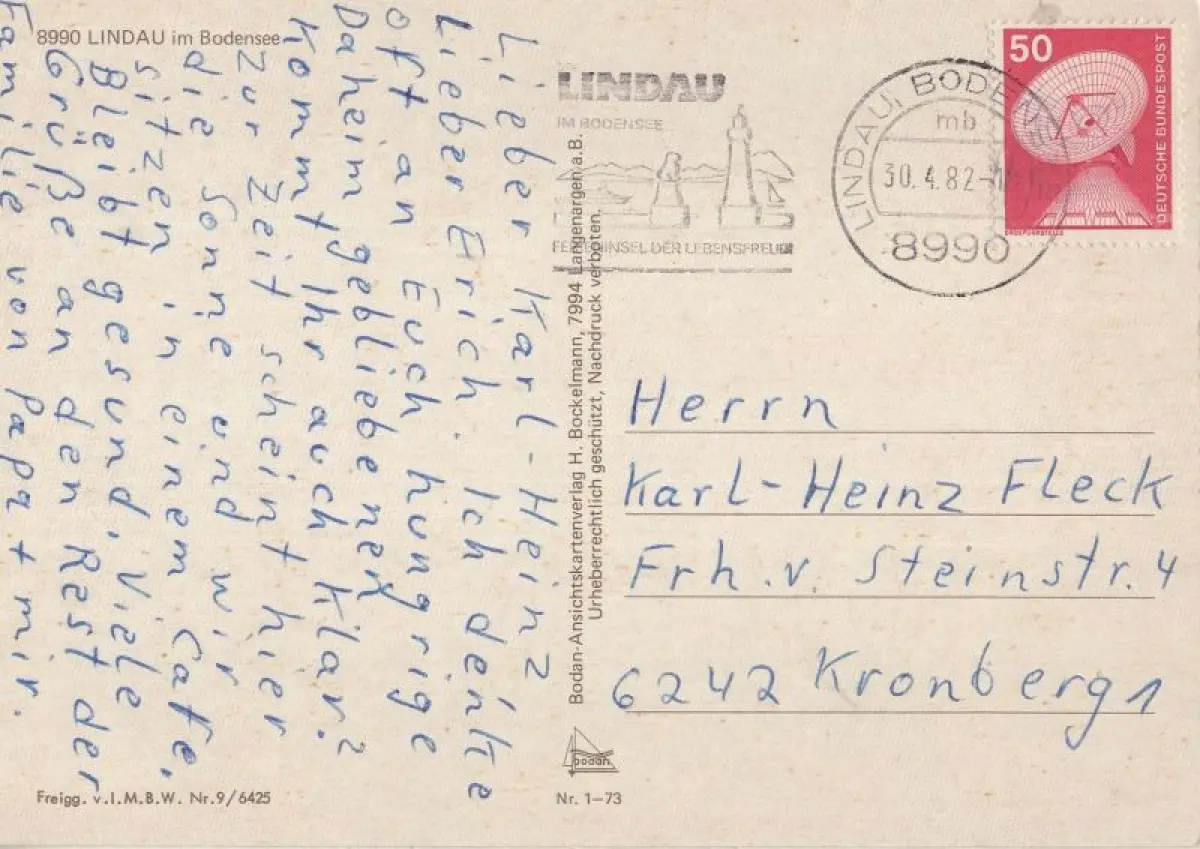 8990 LINDAU im Bodensee
Lieber Karl-Heinz
Lieber Erich. Ich denke
oft an Euch hungrige
Daheimgebliebenen
Kommt Ihr auch klar?
Zur Zeit scheint hier
die Sonne und wir
sitzen in einem Cafe.
Bleibt gesund, Viele
Grüße an den Rest der
Familie von Papa + mir.
Freigg. v. I. M. B. W. Nr. 9/6425
Bodan-Ansichtskartenverlag H. Bockelmann, 7994 Langenargen a. B.
Urheberrechtlich geschützt, Nachdruck verboten.
bodan
Nr. 1-73
LINDAU
IM BODENSEE
FERIENINSEL DER LEBENSFREUDE
LINDAU, BODENSEE
mb
30.4.82
8990
50
DEUTSCHE BUNDESPOST
ERDEFUNKSTELLE
Herrn
Karl-Heinz Fleck
Frh. v. Steinstr. 4
6242 Kronberg 1